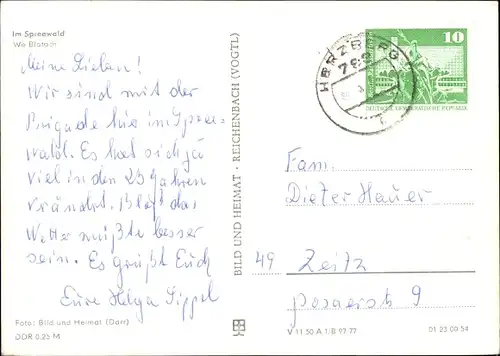 Im Spreewald
We Blotach
Meine Lieben!
Wir sind mit der
Brigade hier im Spree-
wald. Es hat sich ja
viel in den 25 Jahren
verändert. Bloß das
Wetter müßte besser
sein. Es grüßt Euch
Eure Helga Sippel
Foto: Bild und Heimat (Darr)
DDR 0,25 M
BILD UND HEIMAT · REICHENBACH (VOGTL)
HERZBERG
10
DEUTSCHE DEMOKRATISCHE REPUBLIK
Fam.
Dieter Hauer
49 Zeitz
Posaerstr 9
V 11 50 A 1/B 97 77
01 23 00 54